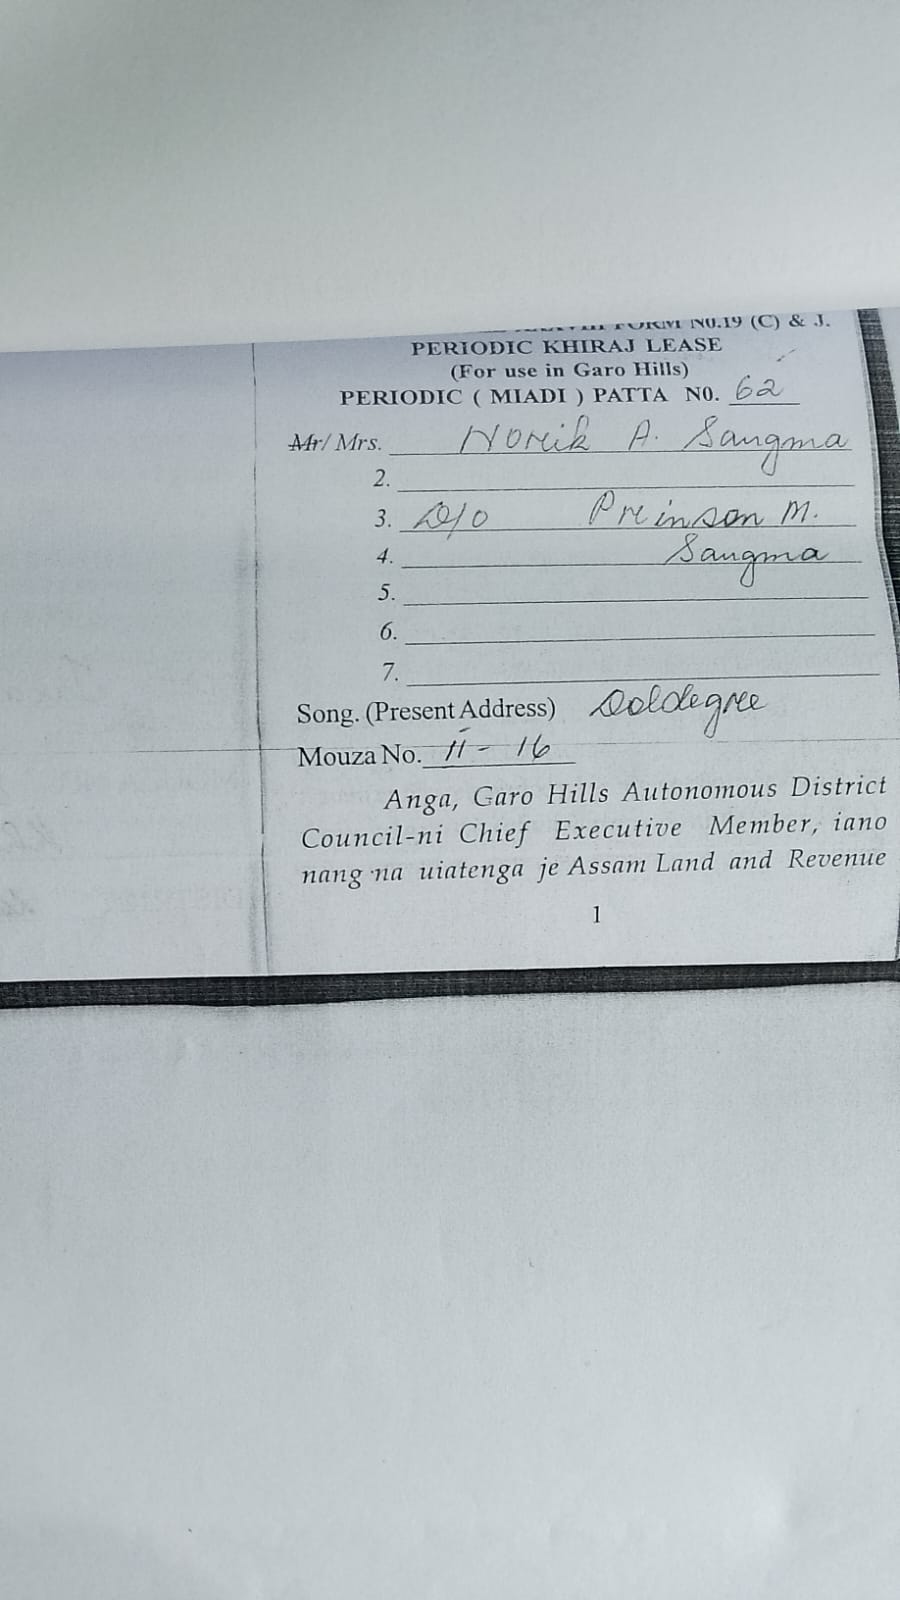 FORM N0.19 (C) & J.
PERIODIC KHIRAJ LEASE
(For use in Garo Hills)
PERIODIC ( MIADI ) PATTA N0. 62
Mr/ Mrs. Norik A. Sangma
2.
3. D/o Preinson M.
4. Sangma
5.
6.
7.
Song. (Present Address) Doldegree
Mouza No. II - 16
Anga, Garo Hills Autonomous District
Council-ni Chief Executive Member, iano
nang·na uiatenga je Assam Land and Revenue
1